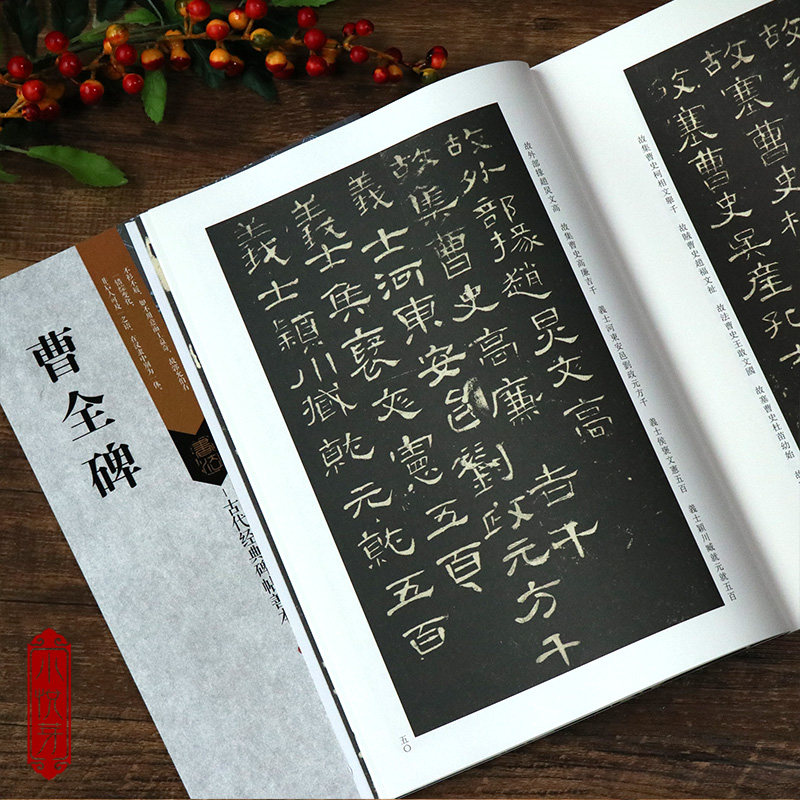 故法
故塞曹史杜
故塞曹史吳產孔
故集曹史柯相文舉千 故賊曹史趙福文祉 故法曹史王敢文國 故塞曹史杜苗幼始
故外部掾趙炅文高 故集曹史高廉吉千 義士河東安邑劉政元方千 義士侯褒文憲五百 義士穎川臧就元就五百
故外部掾趙炅文高
故集曹史高廉吉千
義士河東安邑劉政元方千
義士侯褒文憲五百
義士穎川臧就元就五百
五〇
曹全碑
古代经典碑帖善